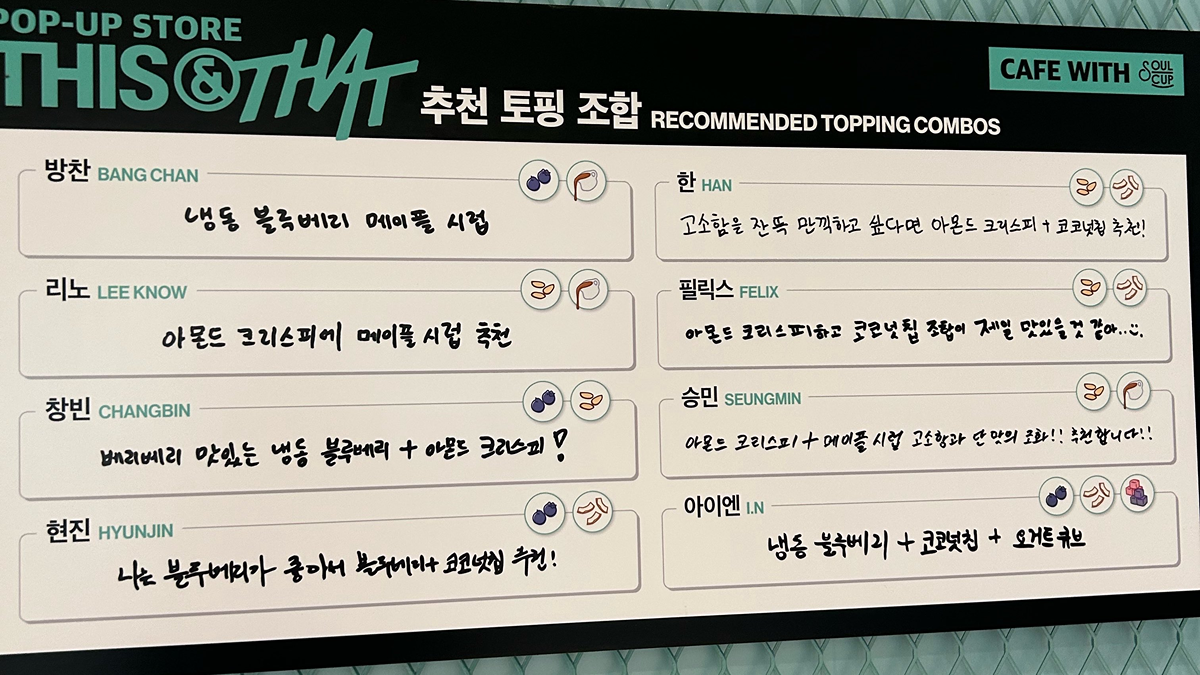 POP-UP STORE
THIS & THAT
추천 토핑 조합 RECOMMENDED TOPPING COMBOS
CAFE WITH SOUL CUP
방찬 BANG CHAN
냉동 블루베리 메이플 시럽
리노 LEE KNOW
아몬드 크리스피에 메이플 시럽 추천
창빈 CHANGBIN
베리베리 맛있는 냉동 블루베리 + 아몬드 크리스피!
현진 HYUNJIN
나는 블루베리가 좋아서 블루베리+ 코코넛칩 추천!
한 HAN
고소함을 잔뜩 만끽하고 싶다면 아몬드 크리스피 + 코코넛칩 추천!
필릭스 FELIX
아몬드 크리스피하고 코코넛칩 조합이 제일 맛있을 것 같아..
승민 SEUNGMIN
아몬드 크리스피 + 메이플 시럽 고소함과 단맛의 조화!! 추천합니다!!
아이엔 I.N
냉동 블루베리 + 코코넛칩 + 요거트 큐브